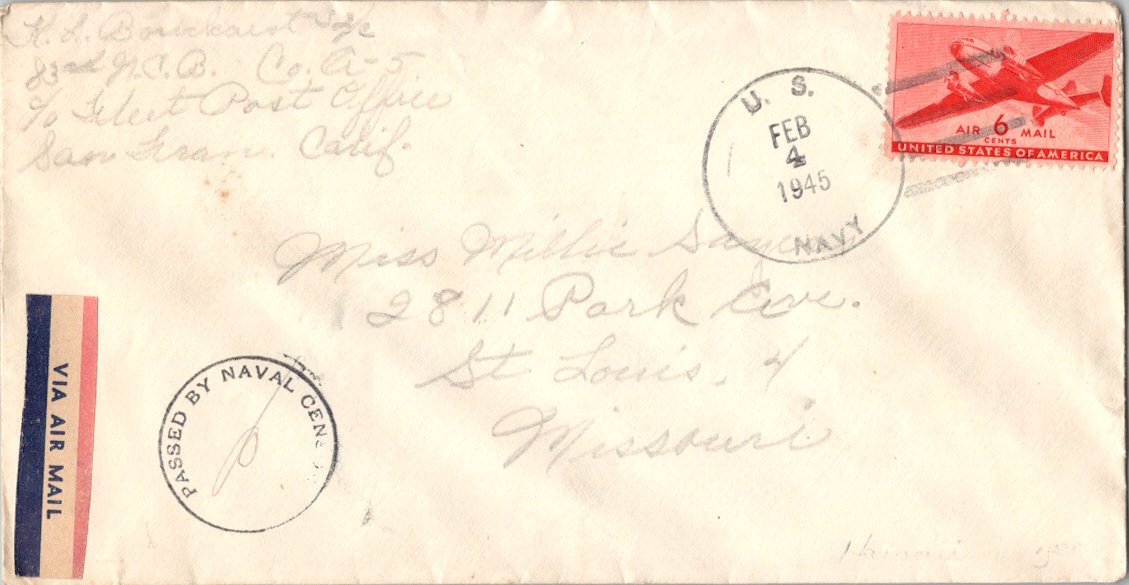 83rd N.C.B. Co. A-5
c/o Fleet Post Office
San Fran. Calif.
U. S.
FEB
4
1945
NAVY
AIR 6 MAIL
CENTS
UNITED STATES OF AMERICA
Miss Millie
2811 Park Ave.
St Louis, 4
Missouri
VIA AIR MAIL
PASSED BY NAVAL CENS